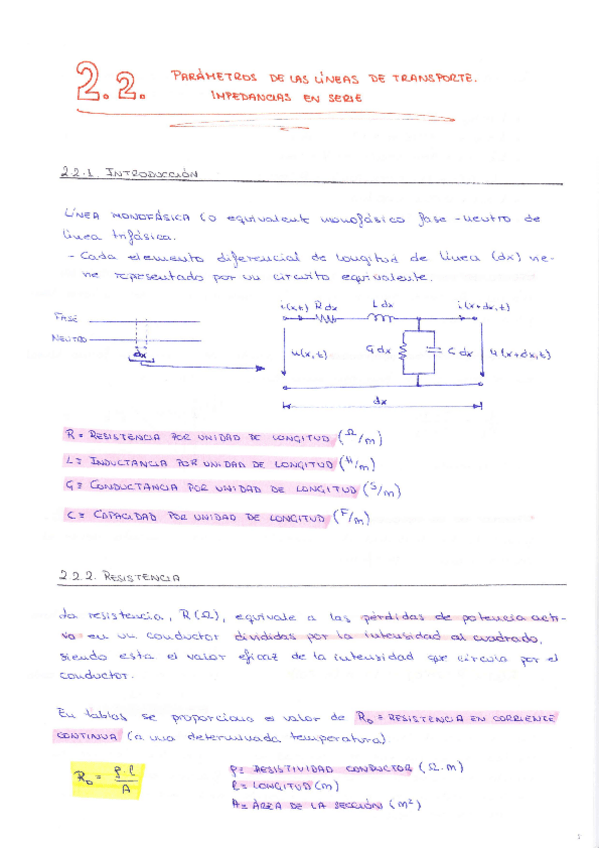 2.2. PARÁMETROS DE LAS LÍNEAS DE TRANSPORTE.
IMPEDANCIAS EN SERIE
2.2.1. INTRODUCCIÓN
LÍNEA MONOFÁSICA (o equivalente monofásico fase-neutro de
línea trifásica.
- Cada elemento diferencial de longitud de línea (dx) vie-
ne representado por un circuito equivalente.
FASE
NEUTRO
dx
i(x,t) R dx L dx i(x+dx,t)
u(x,t) G dx C dx u(x+dx,t)
dx
R = RESISTENCIA POR UNIDAD DE LONGITUD (Ω/m)
L = INDUCTANCIA POR UNIDAD DE LONGITUD (H/m)
G = CONDUCTANCIA POR UNIDAD DE LONGITUD (S/m)
C = CAPACIDAD POR UNIDAD DE LONGITUD (F/m)
2.2.2. RESISTENCIA
La resistencia, R(Ω), equivale a las pérdidas de potencia acti-
va en un conductor divididas por la intensidad al cuadrado,
siendo esta el valor eficaz de la intensidad que circula por el
conductor.
En tablas se proporciona el valor de R₀ = RESISTENCIA EN CORRIENTE
CONTINUA (a una determinada temperatura)
R₀ = ρ l / A
ρ = RESISTIVIDAD CONDUCTOR (Ω.m)
l = LONGITUD (m)
A = ÁREA DE LA SECCIÓN (m²)